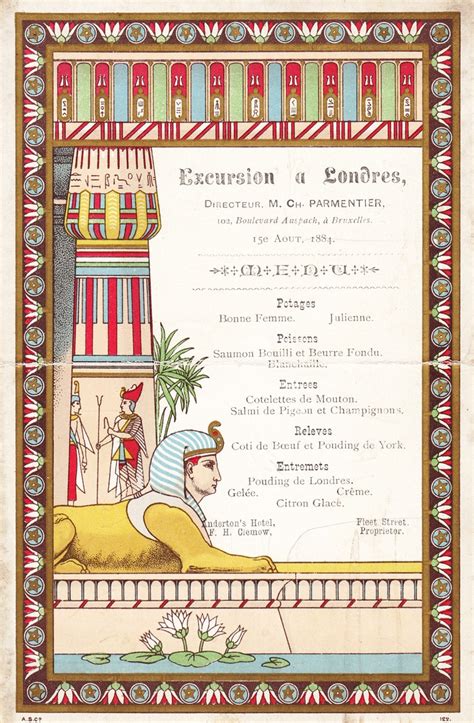 Excursion a Londres,
DIRECTEUR, M. CH. PARMENTIER,
102, Boulevard Anspach, à Bruxelles.
15e AOUT, 1884.
MENU
Potages
Bonne Femme. Julienne.
Poissons
Saumon Bouilli et Beurre Fondu.
Blanchaille.
Entrees
Cotelettes de Mouton.
Salmi de Pigeon et Champignons.
Releves
Coti de Bœuf et Pouding de York.
Entremets
Pouding de Londres.
Gelée. Crème.
Citron Glacé.
Anderton's Hotel, Fleet Street.
F. H. Clemow, Proprietor.
A.S.Cº
122.